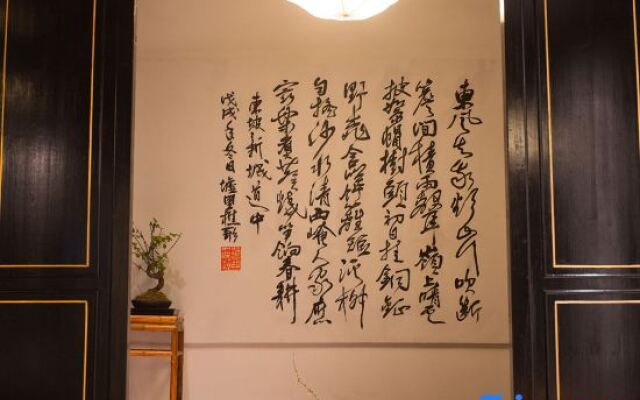 東風知我欲山行吹斷
簷間積雨聲嶺上晴雲
披絮帽樹頭初日挂銅鉦
野桃含笑竹籬短溪柳
自搖沙水清西崦人家應
最樂煮葵燒筍餉春耕
東坡新城道中
戊戌年冬日